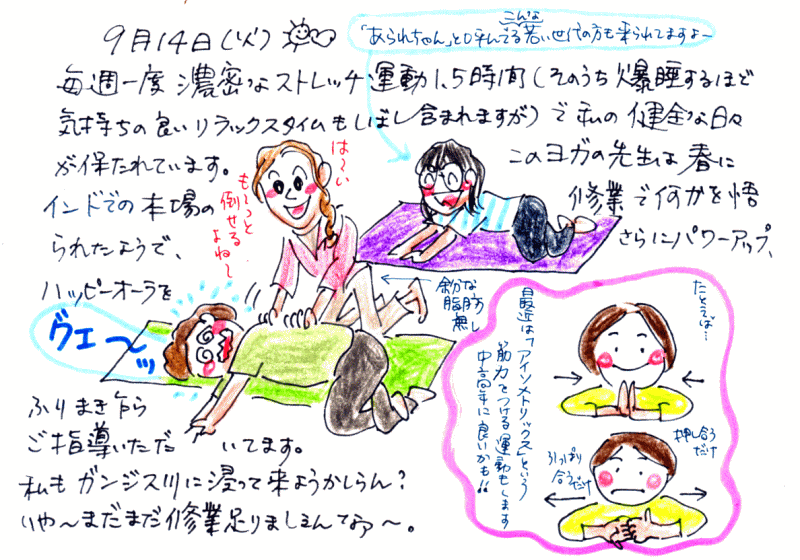 9月14日(火)
「あられちゃん」と呼んでるこんな若い世代の方も来られてますよ～
毎週一度 濃密なストレッチ運動1.5時間(そのうち爆睡するほど
気持ちの良いリラックスタイムもしばし含まれますが)で私の健全な日々
が保たれています。
このヨガの先生は春に
インドでの本場の
修業で何かを悟
られたようで、
さらにパワーアップ、
ハッピーオーラを
は～い
も～っと
倒せる
よね～
余分な
脂肪
無し
グエ～ッ
ふりまき乍ら
ご指導いただいてます。
私もガンジス川に浸って来ようかしらん？
いや～まだまだ修業足りましぇんてぁ～。
最近は「アイソメトリックス」という
筋力をつける運動もします
中高年に良いかも!!
たとえば…
押し合う
だけ
引っぱり
合うだけ